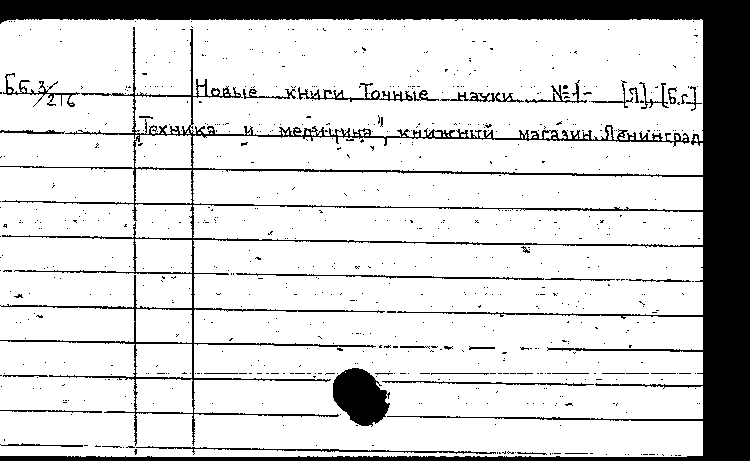 Бб.3/216 Новые книги. Точные науки №1- [Л], [б.г.]
"Техника и медицина", книжный магазин. Ленинград